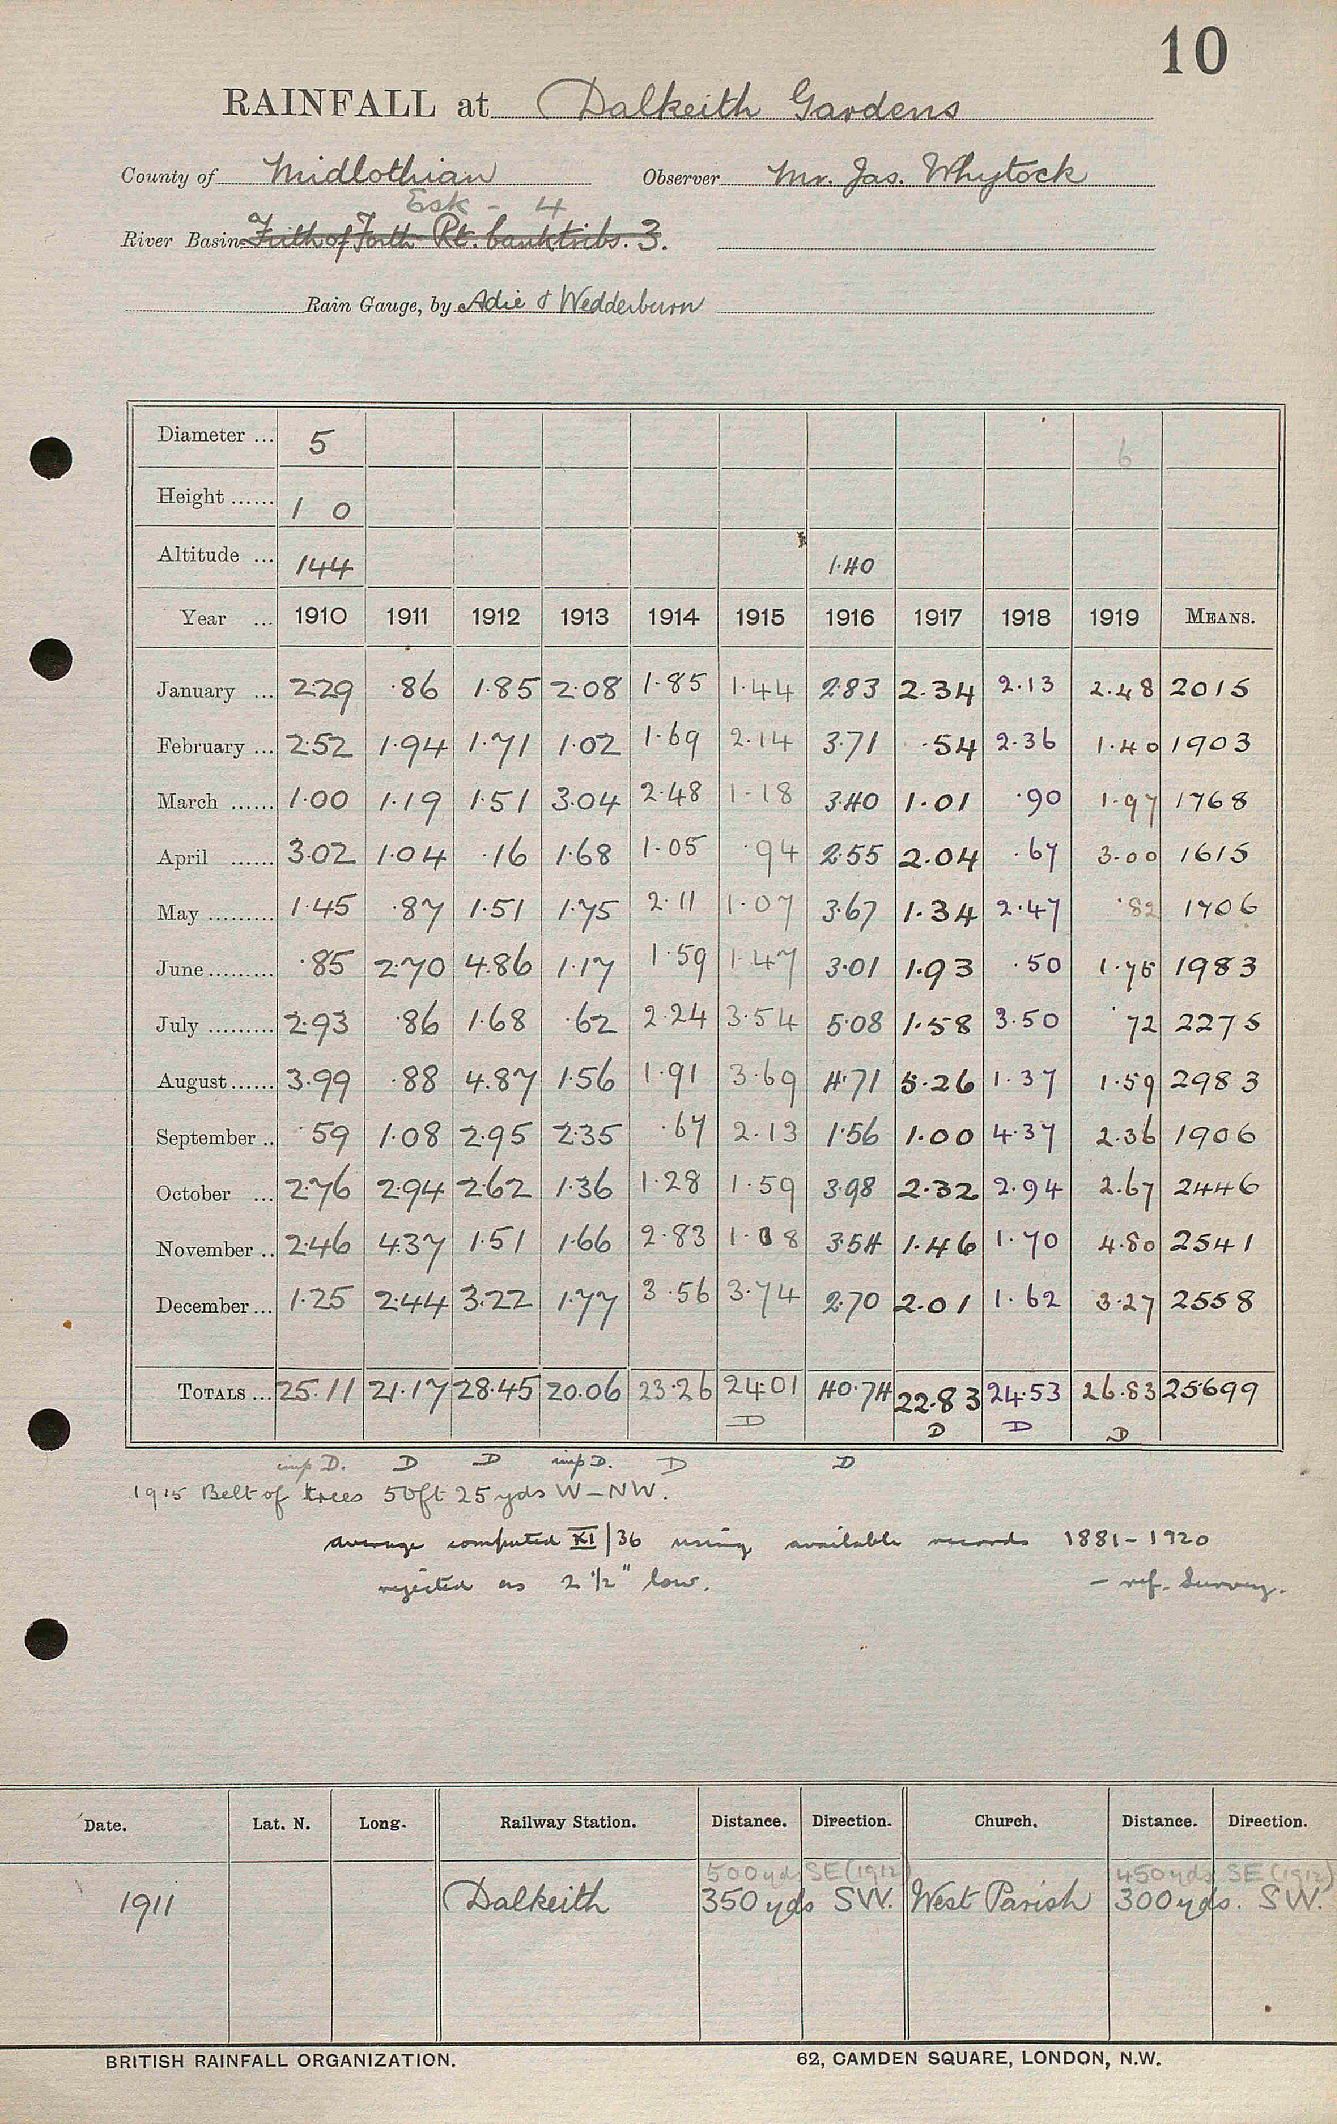 10
RAINFALL at Dalkeith Gardens
County of Midlothian Observer Mr. Jas. Whytock
Esk - 4
River Basin Frith of Forth Rt. bank tribs. 3.
Rain Gauge, by Adie & Wedderburn
Diameter ... 5 6
Height ...... 1 0
Altitude ... 144 1.40
Year ... 1910 1911 1912 1913 1914 1915 1916 1917 1918 1919 MEANS.
January ... 2.29 .86 1.85 2.08 1.85 1.44 2.83 2.34 2.13 2.48 2015
February ... 2.52 1.94 1.71 1.02 1.69 2.14 3.71 .54 2.36 1.40 1903
March ...... 1.00 1.19 1.51 3.04 2.48 1.18 3.40 1.01 .90 1.97 1768
April ...... 3.02 1.04 .16 1.68 1.05 .94 2.55 2.04 .67 3.00 1615
May ......... 1.45 .87 1.51 1.75 2.11 1.07 3.67 1.34 2.47 .82 1706
June ......... .85 2.70 4.86 1.17 1.59 1.47 3.01 1.93 .50 1.75 1983
July ......... 2.93 .86 1.68 .62 2.24 3.54 5.08 1.58 3.50 .72 2275
August ...... 3.99 .88 4.87 1.56 1.91 3.69 4.71 5.26 1.37 1.59 2983
September .. .59 1.08 2.95 2.35 .67 2.13 1.56 1.00 4.37 2.36 1906
October ... 2.76 2.94 2.62 1.36 1.28 1.59 3.98 2.32 2.94 2.67 2446
November .. 2.46 4.37 1.51 1.66 2.83 1.08 3.54 1.46 1.70 4.80 2541
December ... 1.25 2.44 3.22 1.77 3.56 3.74 2.70 2.01 1.62 3.27 2558
TOTALS ... 25.11 21.17 28.45 20.06 23.26 24.01 40.74 22.83 24.53 26.83 25699
D D D D
imp D. D D imp D. D D
1915 Belt of trees 50ft 25 yds W-NW.
average computed XI/36 using available records 1881-1920
rejected as 2 1/2" low. - ref. Survey.
Date. Lat. N. Long. Railway Station. Distance. Direction. Church. Distance. Direction.
500 yds SE (1912) 450 yds SE (1912)
1911 Dalkeith 350 yds SW. West Parish 300 yds. SW.
BRITISH RAINFALL ORGANIZATION. 62, CAMDEN SQUARE, LONDON, N.W.